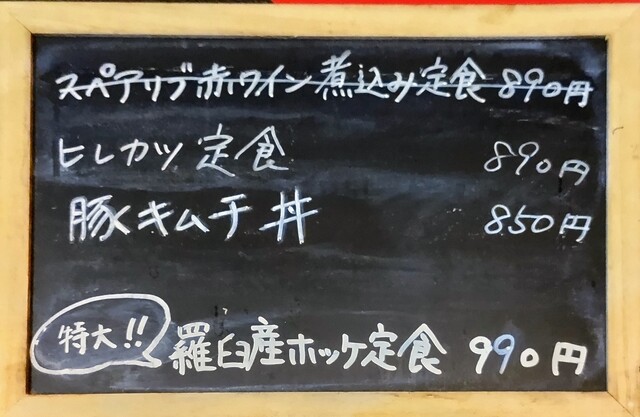 スペアリブ赤ワイン煮込み定食 890円
ヒレカツ定食 890円
豚キムチ丼 850円
特大!! 羅臼産ホッケ定食 990円